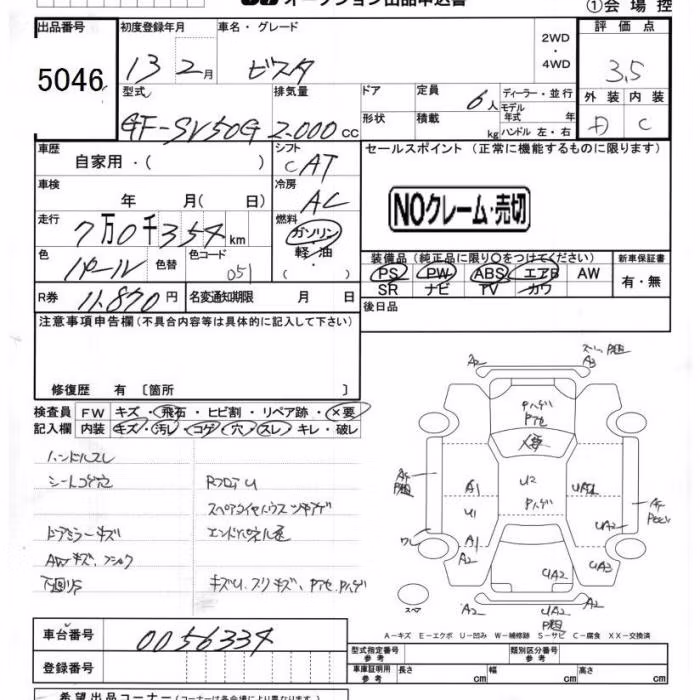 オークション出品申込書
①会場控
出品番号
5046
初度登録年月
13 2月
車名・グレード
ビスタ
2WD
・
4WD
評価点
3.5
外装 内装
D C
型式
GF-SV50G
排気量
2.000cc
ドア
形状
定員
6人
積載
kg
ディーラー・並行
モデル
年式 年
ハンドル 左・右
車歴
自家用・( )
シフト
CAT
車検
年 月( 日)
冷房
AC
走行
7万0千354km
燃料
ガソリン
・
軽油
・( )
色
パール
色替
色コード
051
R券 11,870円
名変通知期限 月 日
セールスポイント(正常に機能するものに限ります)
NOクレーム・売切
装備品(純正品に限り○をつけてください)
PS PW ABS エアB AW
SR ナビ TV カワ
新車保証書
有・無
後日品
注意事項申告欄(不具合内容等は具体的に記入して下さい)
修復歴 有〔箇所 〕
検査員 FW キズ・飛石・ヒビ割・リペア跡・×要
記入欄 内装 キズ・汚レ・コゲ・穴・スレ・キレ・破レ
ハンドルスレ
シートコゲ穴
RフロアU
スペアタイヤハウス
ドアミラーキズ
エンドパネル
AWキズ
下廻リサビ
キズU
A2
A3
Pハゲ
×要
A1
U2
U1
Pハゲ
A1
UA2
A2
UA3
UA2
UA2
A2
A2
スペア
A-キズ E-エクボ U-凹み W-補修跡 S-サビ C-腐食 XX-交換済
車台番号
0056334
登録番号
型式指定番号
参考
類別区分番号
参考
車庫証明用
参考
長さ cm
幅 cm
高さ cm
希望出品コーナー(コーナーは各会場により異なります)